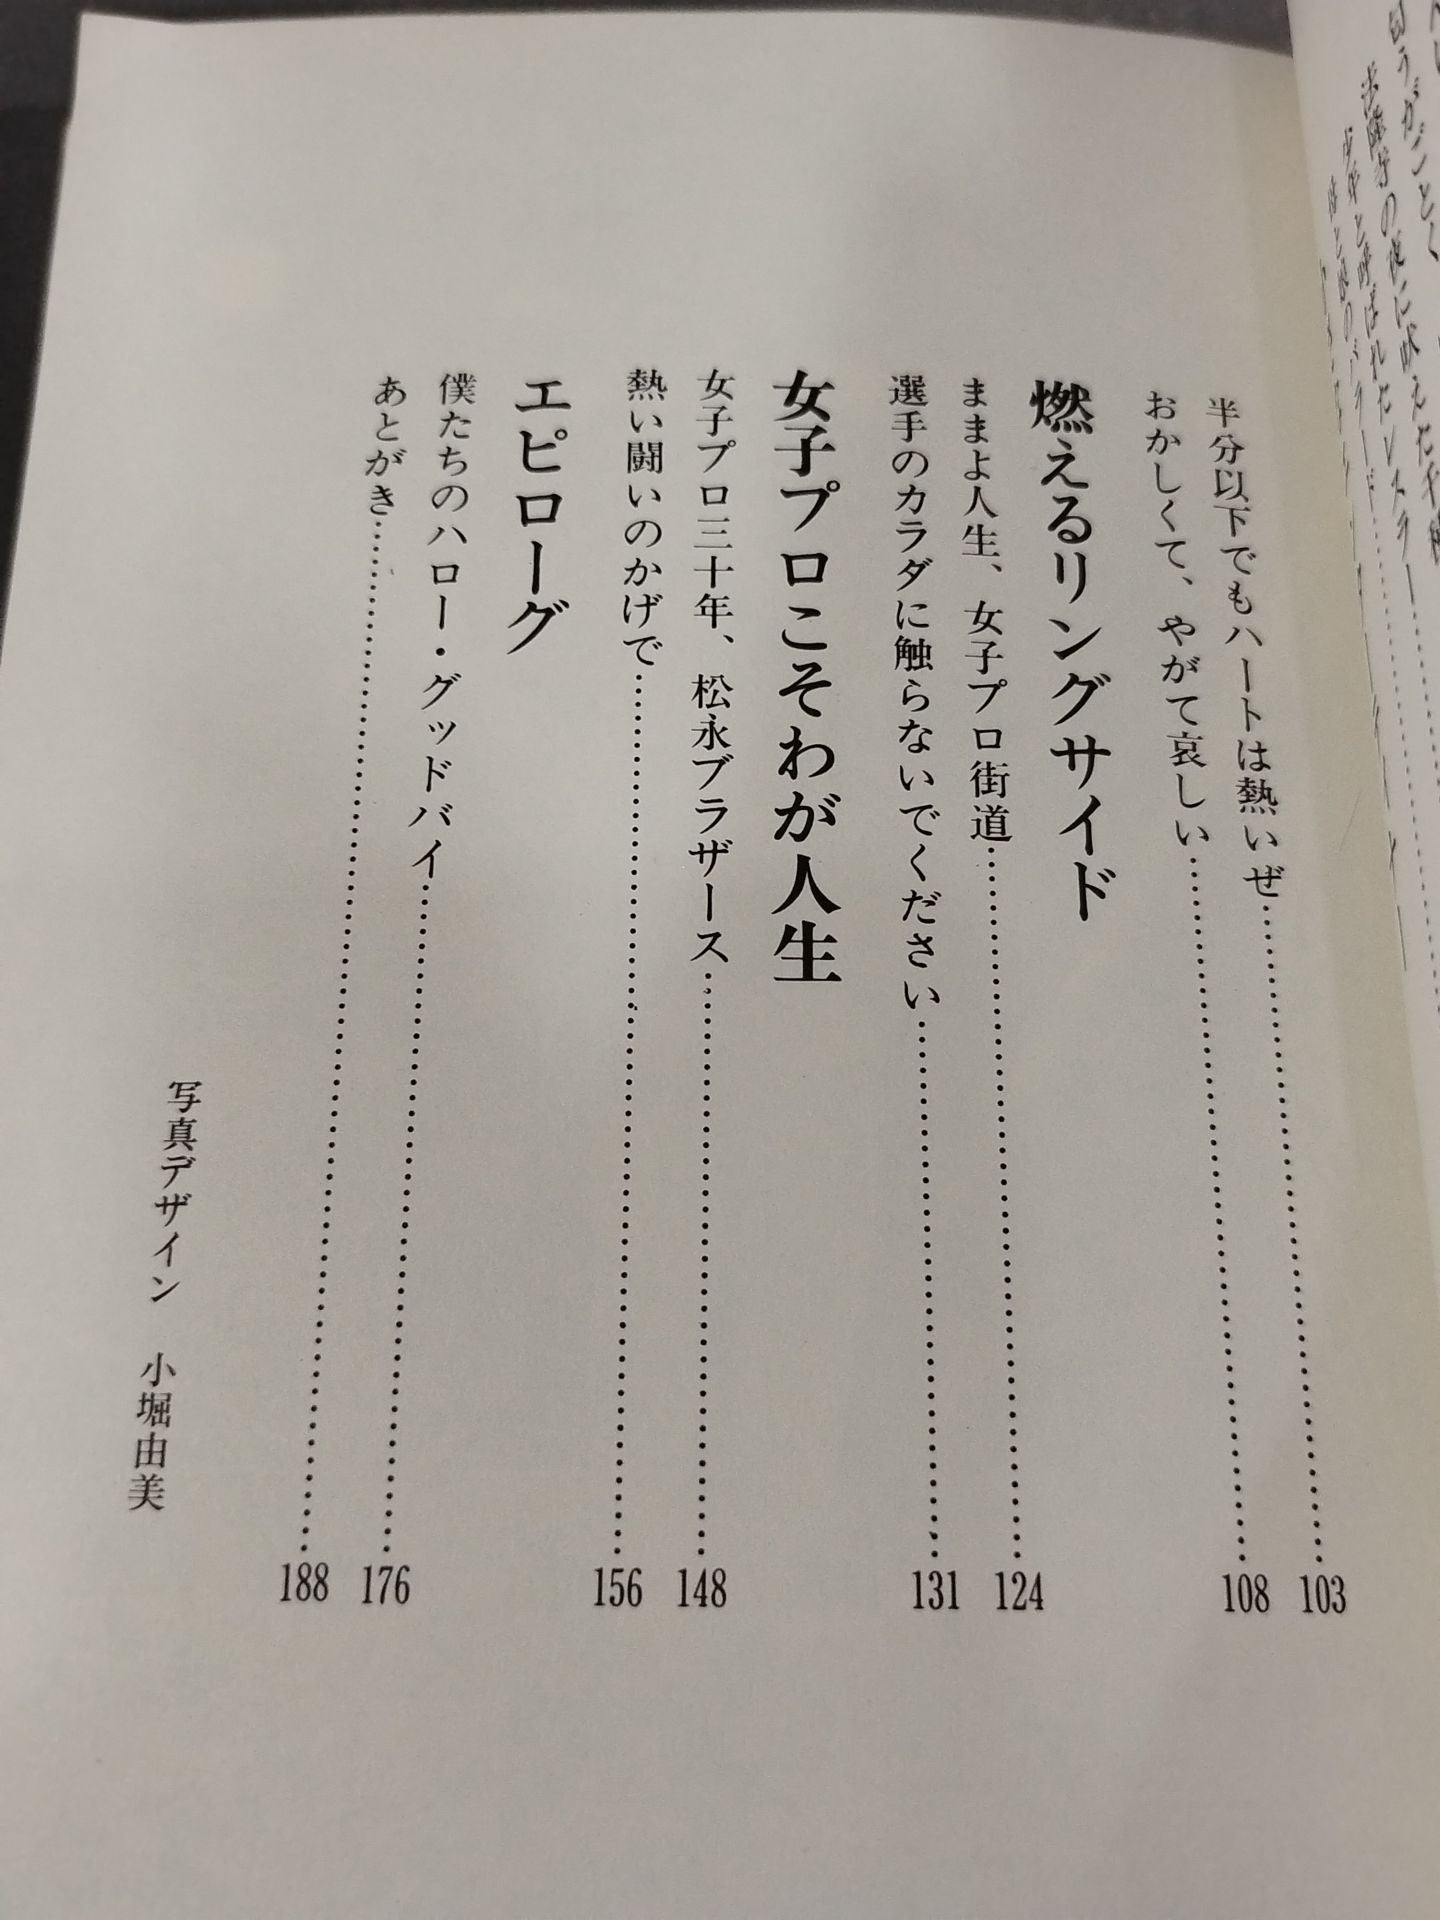 半分以下でもハートは熱いぜ……103
おかしくて、やがて哀しい……108
燃えるリングサイド
ままよ人生、女子プロ街道……124
選手のカラダに触らないでください……131
女子プロこそわが人生
女子プロ三十年、松永ブラザース……148
熱い闘いのかげで……156
エピローグ
僕たちのハロー・グッドバイ……176
あとがき……188
写真デザイン　小堀由美